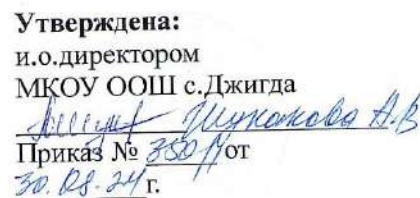 Утверждена:
и.о.директором
МКОУ ООШ с.Джигда
А.В
Приказ № 350 от
30.08.24 г.